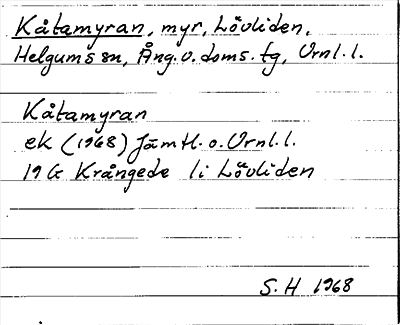 Kåtamyran, myr, Lövliden,
Helgums sn, Ång.v.doms.tg, Vrnl.l.
Kåtamyran
ek (1968) Jämtl.o.Vrnl.l.
19 G Krångede li Lövliden
S.H 1968